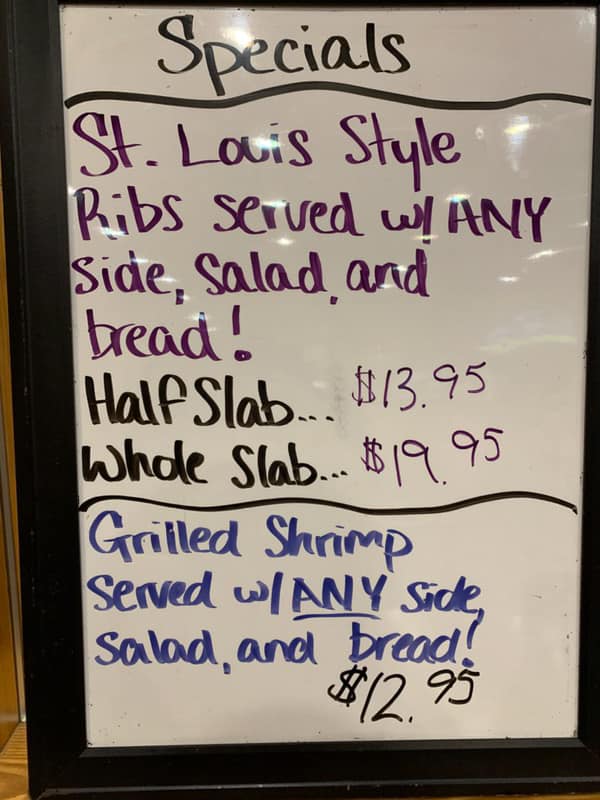 Specials
St. Louis Style
Ribs served w/ ANY
side, salad, and
bread!
Half Slab... $13.95
Whole Slab... $19.95
Grilled Shrimp
Served w/ ANY side,
salad, and bread!
$12.95